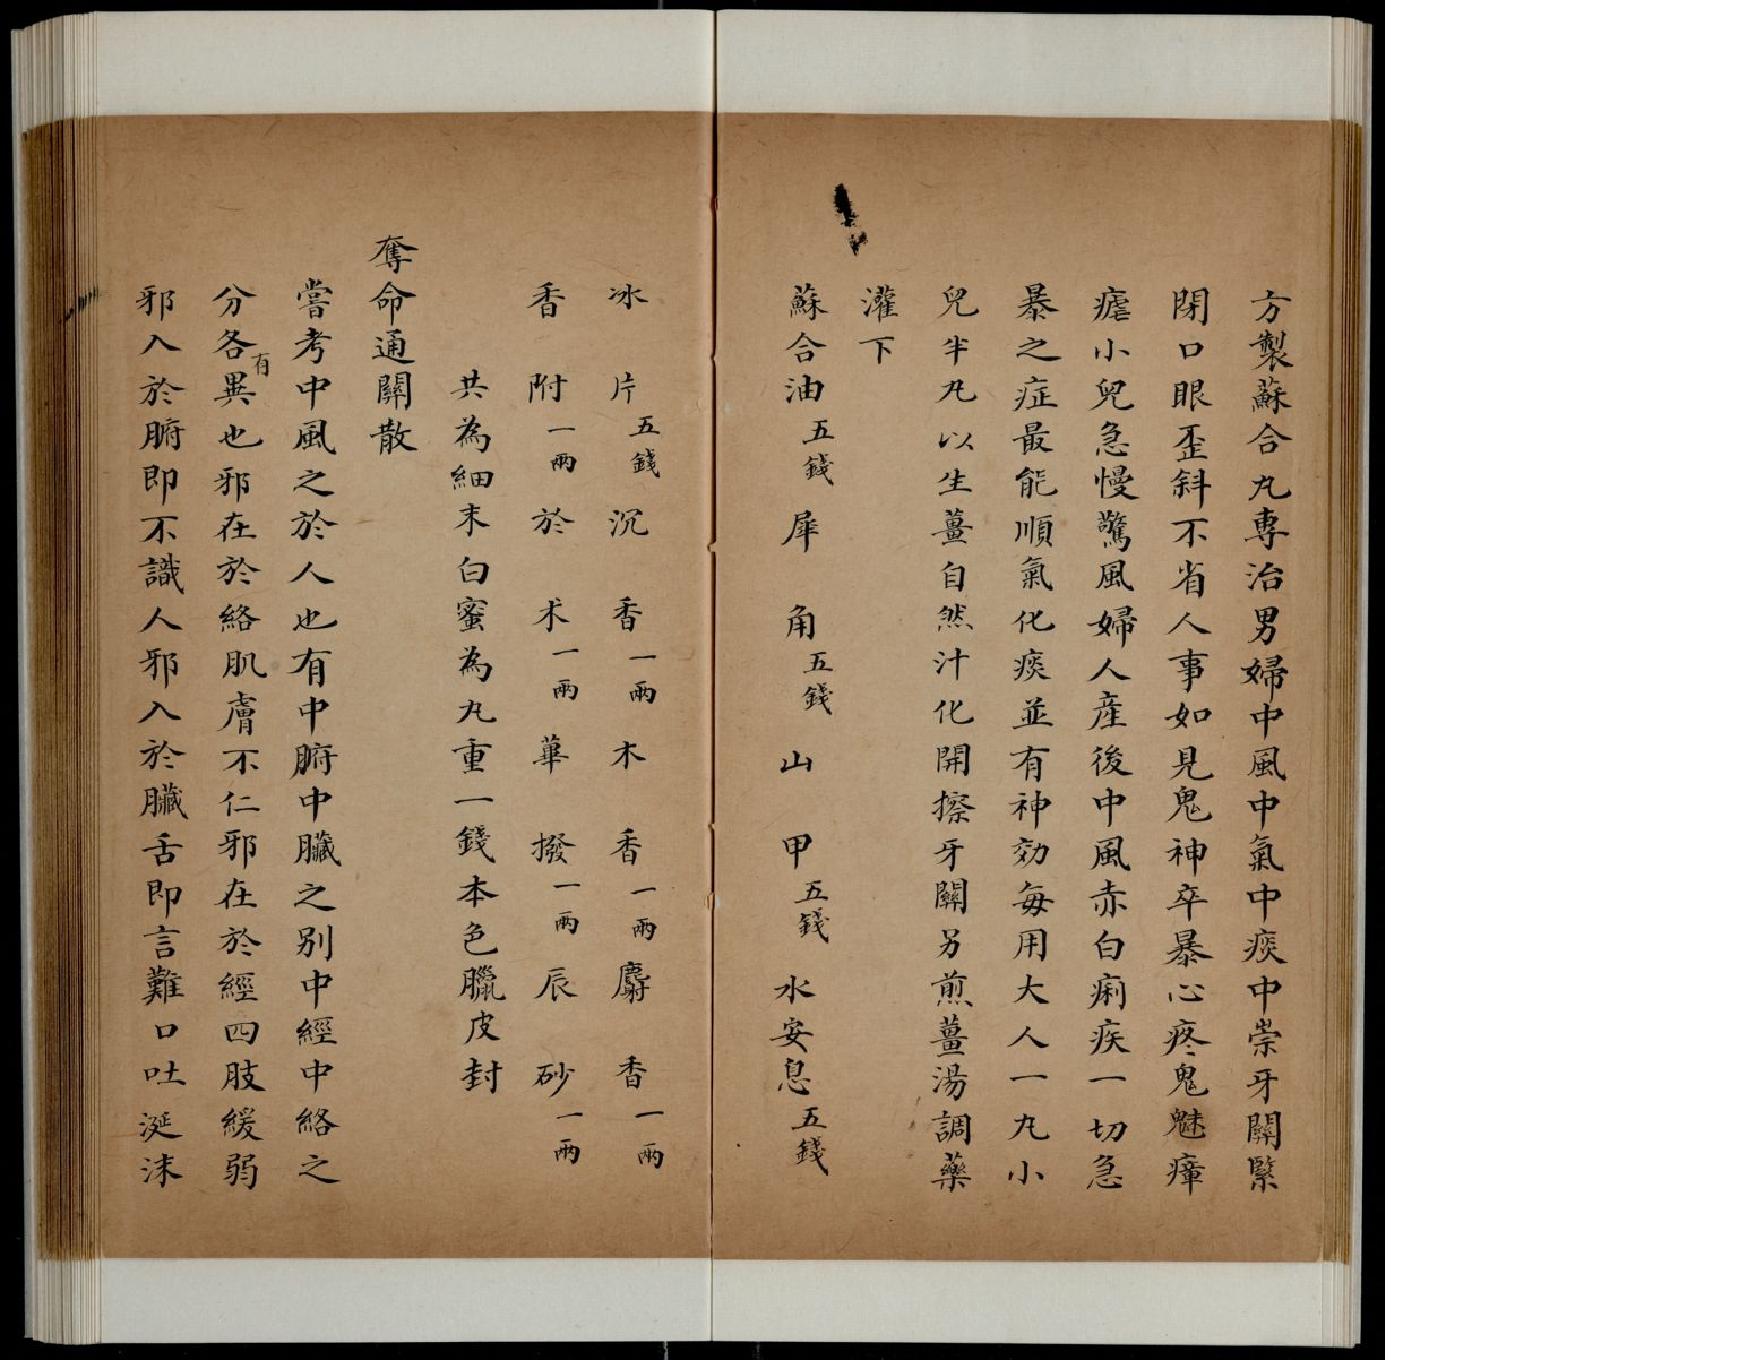 方製蘇合丸專治男婦中風中氣中痰中祟牙關緊
閉口眼歪斜不省人事如見鬼神卒暴心疼鬼魅瘴
瘧小兒急慢驚風婦人產後中風赤白痢疾一切急
暴之症最能順氣化痰並有神効每用大人一丸小
兒半丸以生薑自然汁化開擦牙關另煎薑湯調藥
灌下
蘇合油五錢 犀角五錢 山甲五錢 水安息五錢
冰片五錢 沉香一兩 木香一兩 麝香一兩
香附一兩 於术一兩 蓽撥一兩 辰砂一兩
共為細末白蜜為丸重一錢本色臘皮封
奪命通關散
嘗考中風之於人也有中腑中臟之別中經中絡之
分各有異也邪在於絡肌膚不仁邪在於經四肢緩弱
邪入於腑即不識人邪入於臟舌即言難口吐涎沫